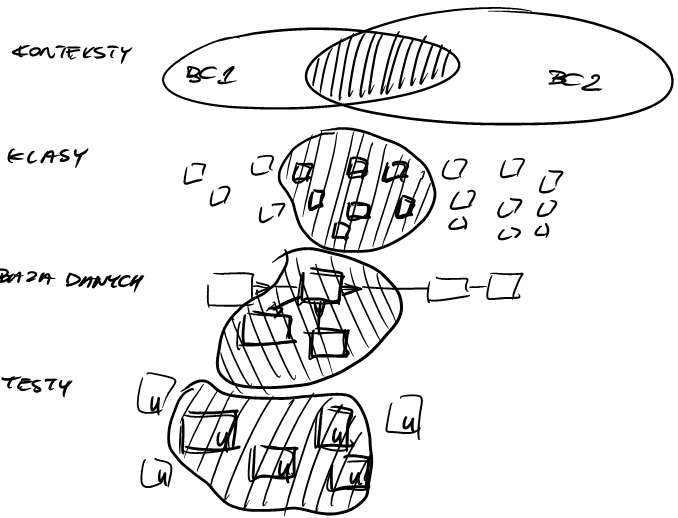 KONTEKSTY
BC1
BC2
KLASY
BAZA DANYCH
TESTY
u
u
u
u
u
u
u